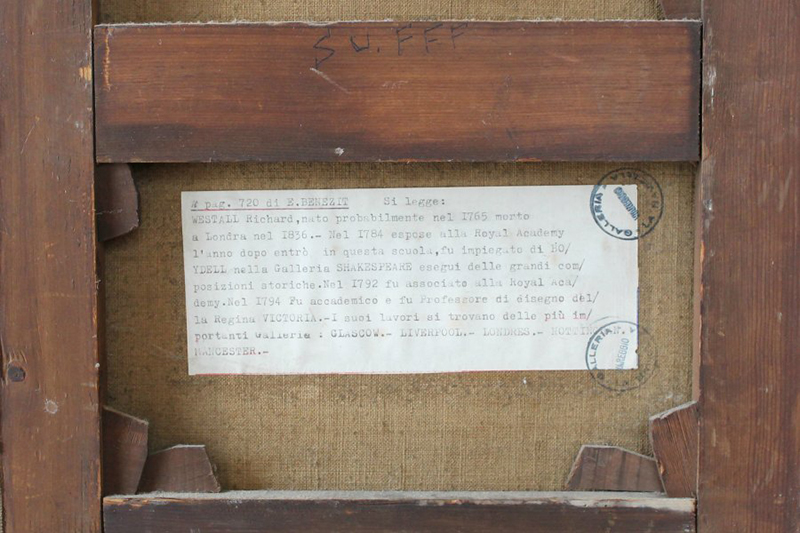 SU. FFF
A pag. 720 di E.BENEZIT Si legge:
WESTALL Richard,nato probabilmente nel I765 morto
a Londra nel I836.- Nel I784 espose alla Royal Academy
l'anno dopo entrò in questa scuola,fu impiegato di NO/
YDELL nella Galleria SHAKESPEARE esegui delle grandi com/
posizioni storiche.Nel I792 fu associato alla Royal Aca/
demy.Nel I794 Fu accademico e fu Professore di disegno del/
la Regina VICTORIA.-I suoi lavori si trovano delle più im/
portanti Galleria : GLASCOW.- LIVERPOOL.- LONDRES.-
MANCESTER.-
GALLERIA
GALLERIA